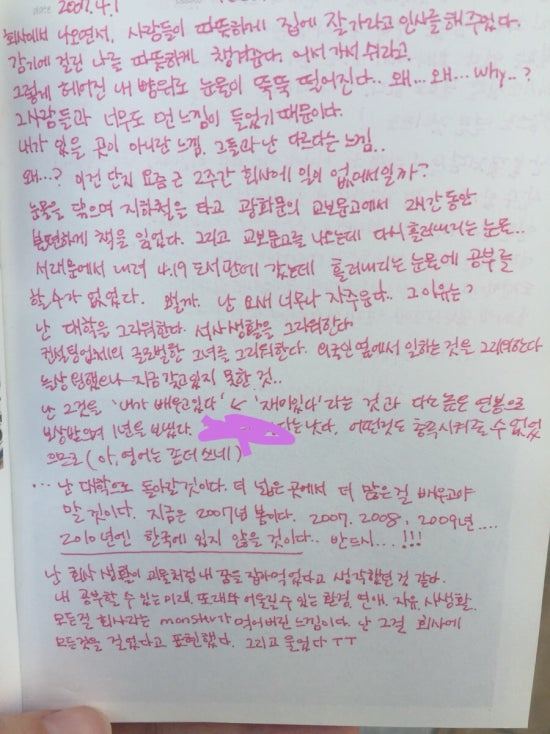 2007.4.1
회사에서 나오면서, 사람들이 따뜻하게 집에 잘가라고 인사를 해주었다.
감기에 걸린 나를 따뜻하게 챙겨준다. 어서 가서 쉬라고.
그렇게 헤어진 내 뺨위로 눈물이 뚝뚝 떨어진다.. 왜... 왜... why..?
그사람들과 너무도 먼 느낌이 들었기 때문이다.
내가 있을 곳이 아니란 느낌. 그들과 난 다르다는 느낌..
왜...? 이건 단지 요즘 근 2주간 회사에 일이 없어서일까?
눈물을 닦으며 지하철을 타고 광화문의 교보문고에서 2시간 동안
불편하게 책을 읽었다. 그리고 교보문고를 나오는데 다시 흘러내리는 눈물..
서래울에서 내려 4.19 도서관에 갔는데 흘러내리는 눈물에 공부를
할 수가 없었다. 뭘까. 난 요새 너무나 자주 운다.. 그 이유는?
난 대학을 그리워한다. 석사생활을 그리워한다
컨설팅업체의 글로벌한 그녀를 그리워한다. 외국인 옆에서 일하는 것을 그리워한다
늘상 지금 갖고있지 못한 것..
난 그것을 '내가 배우고있다' ← '재미있다' 라는 것과 다소 높은 연봉으로
보상받으며 1년을 보냈다. 낫다. 어떤것도 충족시켜줄 수 없었
으므로 (아, 영어는 쓰네)
... 난 대학으로 돌아갈 것이다. 더 넓은 곳에서 더 많은걸 배우고야
말 것이다. 지금은 2007년 봄이다. 2007, 2008, 2009년....
2010년엔 한국에 있지 않을 것이다.. 반드시...!!!
난 회사 생활이 괴물처럼 내 꿈을 잡아먹었다고 생각했던 것 같다.
내 공부할 수 있는 미래, 또래와 어울릴 수 있는 환경, 연애, 자유, 사생활.
모든걸 회사라는 monster가 먹어버린 느낌이다. 난 그걸 회사에
모든것을 걸었다고 표현했다. 그리고 울었다 ㅜㅜ